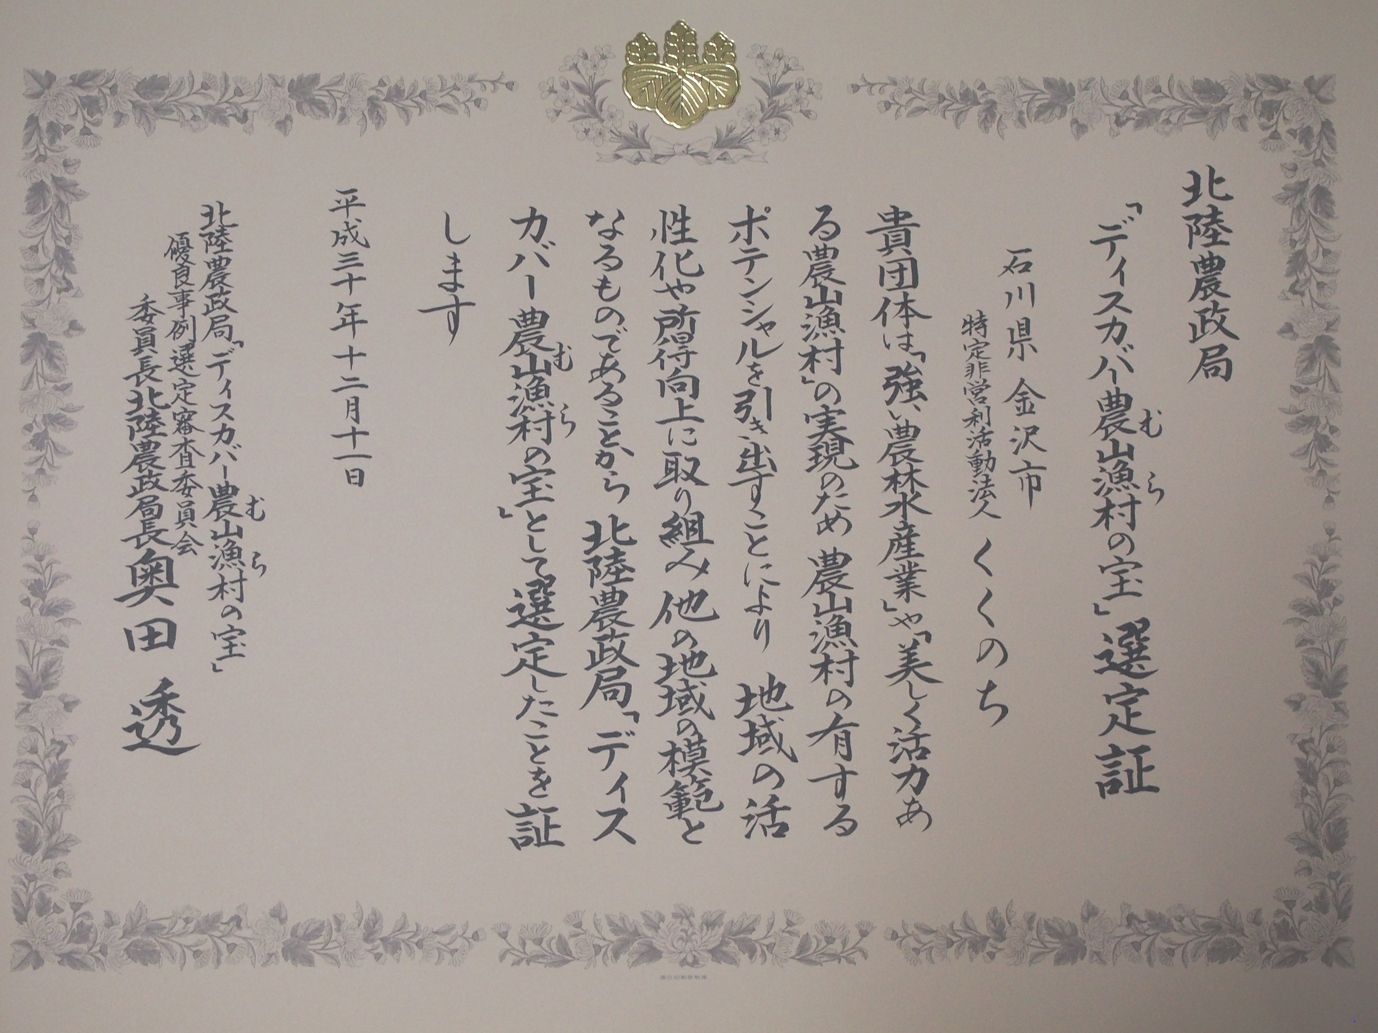 北陸農政局
「ディスカバー農山漁村の宝」選定証
むら
石川県 金沢市
特定非営利活動法人 くくのち
貴団体は「強い農林水産業」や「美しく活力あ
る農山漁村」の実現のため 農山漁村の有する
ポテンシャルを引き出すことにより 地域の活
性化や所得向上に取り組み 他の地域の模範と
なるものであることから 北陸農政局「ディス
カバー農山漁村の宝」として選定したことを証
むら
します
平成三十年十二月十一日
北陸農政局「ディスカバー農山漁村の宝」
むら
優良事例選定審査委員会
委員長北陸農政局長奥田 透